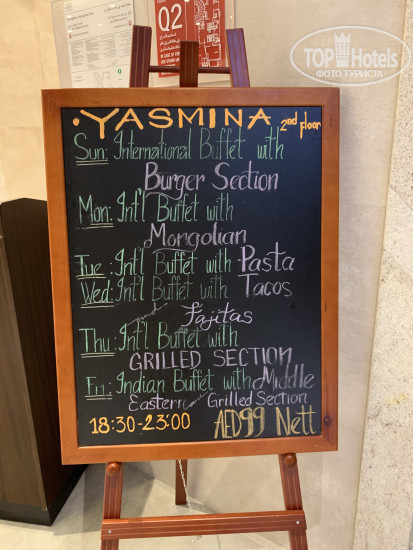 02
TOP Hotels
ФОТО ТУРИСТА
YASMINA 2nd Floor
Sun: International Buffet with
Burger Section
Mon: Int'l Buffet with
Mongolian
Tue: Int'l Buffet with Pasta
Wed: Int'l Buffet with Tacos
and Fajitas
Thu: Int'l Buffet with
GRILLED SECTION
Fri: Indian Buffet with Middle
Eastern and Grilled Section
18:30-23:00 AED99 Nett